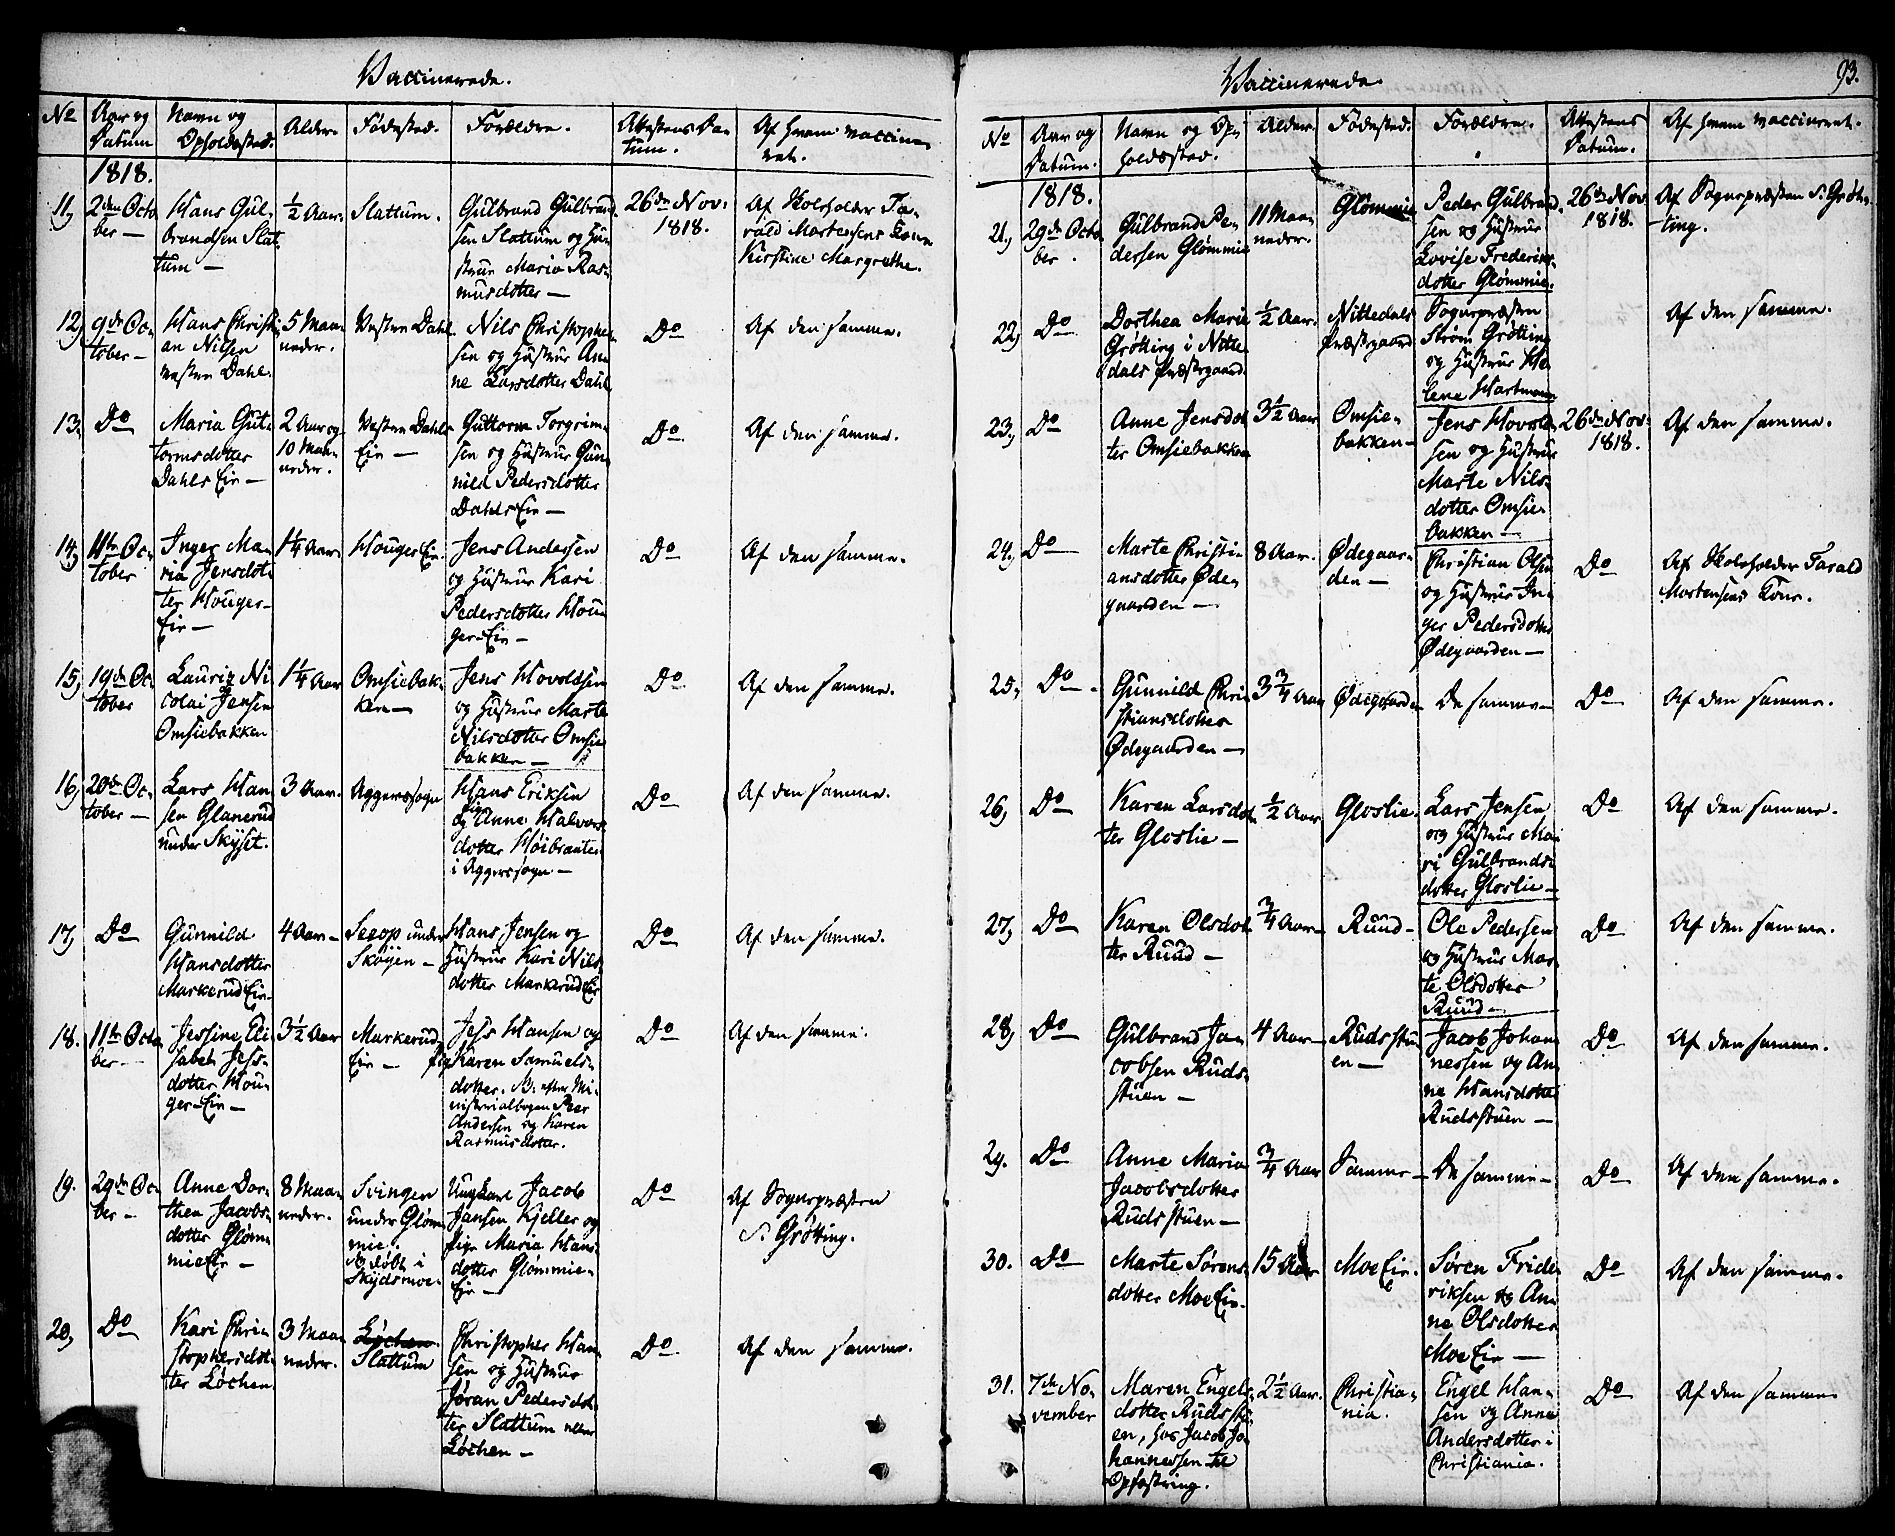 Vaccinerede.
No
Aar og Datum
Navn og Opholdssted.
Alder.
Fødested.
Forældre.
Attestens Datum.
Af hvem vaccineret.
1818.
11, 2den October —
Hans Gulbrandsen Slattum —
½ Aar.
Slattum.
Gulbrand Gulbrandsen Slattum og Hustrue Maria Rasmusdotter —
26de Nov. 1818.
Af Skoleholder Tarald Mortensens Kone Kirstine Margrethe.
12, 9de October —
Hans Christian Nilsen Vestre Dahl.
5 Maaneder.
Vestre Dahl
Nils Christophersen og Hustrue Anne Larsdotter Dahl
Do
Af den samme.
13. Do
Maria Guttormsdotter Dahls Eie —
2 Aar og 10 Maaneder.
Vestre Dahls Eie —
Guttorm Torgrimsen og Hustrue Gunnild Pedersdotter Dahls Eie —
Do
Af den samme.
14, 11te October
Inger Maria Jensdotter Houger-Eie —
1¼ Aar
HougerEie.
Jens Andersen og Hustrue Kari Pedersdotter Houger-Eie —
Do
Af den samme.
15, 19de October
Lauriz Nicolai Jensen Omsiebakken
1¼ Aar
Omsiebakken —
Jens Hovoldsen og Hustrue Marte Nilsdotter Omsiebakken —
Do
Af den samme.
16, 20de October —
Lars Hansen Glanerud under Skyset.
3 Aar.
Aggerssogn
Hans Eriksen og Pige Anne Halvorsdotter Høibraaten i Aggerssogn —
Do
Af den samme.
17, Do
Gunnild Hansdotter MarkerudEie.
4 Aar —
Seeop under Skøyen —
Hans Jensen og Hustrue Kari Nilsdotter MarkerudEie
Do
Af den samme.
18. 11te October —
Jessine Elisabeth Jessdotter Houger-Eie —
3½ Aar
Markerud-Eie —
Jess Hansen og Pige Karen Samuelsdotter. NB. efter Ministerialbogen Peer Andersen og Karen Rasmusdotter.
Do
Af den samme.
19. 29de October —
Anne Dorthea Jacobsdotter GlømmieEie —
8 Maaneder.
Svingen under Glømmie. NB døbt i Skydsmoe
Ungkarl Jacob Jansen Kjeller og Pige Maria Hansdotter Glømmie-Eie —
Do
Af Sognepræsten S. Grøtting.
20, Do
Kari Christophersdotter Løchen
3 Maaneder.
Løchen. Slattum
Christopher Hansen og Hustrue Jøran Pedersdotter Slattum eller Løchen —
Do
Af den samme.
Vaccinerede.
93.
No
Aar og Datum.
Navn og Opholdssted.
Alder.
Fødested.
Forældre.
Attestens Datum.
Af hvem vaccineret.
1818.
21, 29de October.
Gulbrand Pedersen Glømmie
11 Maaneder.
Glømmie
Peder Gulbrandsen og Hustrue Lovise Frederiksdotter Glømmie.
26de Nov. 1818.
Af Sognepræsten S. Grøtting.
22, Do
Dorthea Marie Grøtting i Nittedals Præstegaard
½ Aar.
Nittedals Præstegaard
Sognepræsten Strøm Grøtting og Hustrue Helene Hartmann
Af den samme.
23, Do
Anne Jensdotter Omsiebakken
3½ Aar
Omsiebakken —
Jens Hovoldsen og Hustrue Marte Nilsdotter Omsiebakken —
26de Nov. 1818.
Af den samme.
24, Do
Marte Christiansdotter Ødegaarden —
8 Aar.
Ødegaarden —
Christian Olsen og Hustrue Inger Pedersdotter Ødegaarden —
Do
Af Skoleholder Tarald Mortensens Kone.
25, Do
Gunnild Christiansdotter Ødegaarden —
3¾ Aar
Ødegaarden
De samme —
Do
Af den samme.
26, Do
Karen Larsdotter Gloslie —
½ Aar
Gloslie.
Lars Jensen og Hustrue Mari Gulbrandsdotter Gloslie —
Do
Af den samme.
27, Do
Karen Olsdotter Ruud —
¾ Aar —
Ruud —
Ole Pedersen og Hustrue Marte Olsdotter Ruud —
Do
Af den samme.
28, Do
Gulbrand Jacobsen Rudsstuen —
4 Aar —
Rudsstuen —
Jacob Johannessen og Anne Hansdotter Rudsstuen —
Do
Af den samme.
29. Do
Anne Maria Jacobsdotter Rudsstuen —
¾ Aar
Samme —
De samme —
Do
Af den samme.
30. Do
Marte Sørensdotter MoeEie.
15 Aar
MoeEie.
Søren Frideriksen og Anne Olsdotter MoeEie —
Do
Af den samme.
31. 7de November
Maren Engelsdotter Rudsstuen, hos Jacob Johannessen til Opfostring.
2½ Aar.
Christiania.
Engel Hansen og Anne Andersdotter i Christiania.
Do
Af den samme